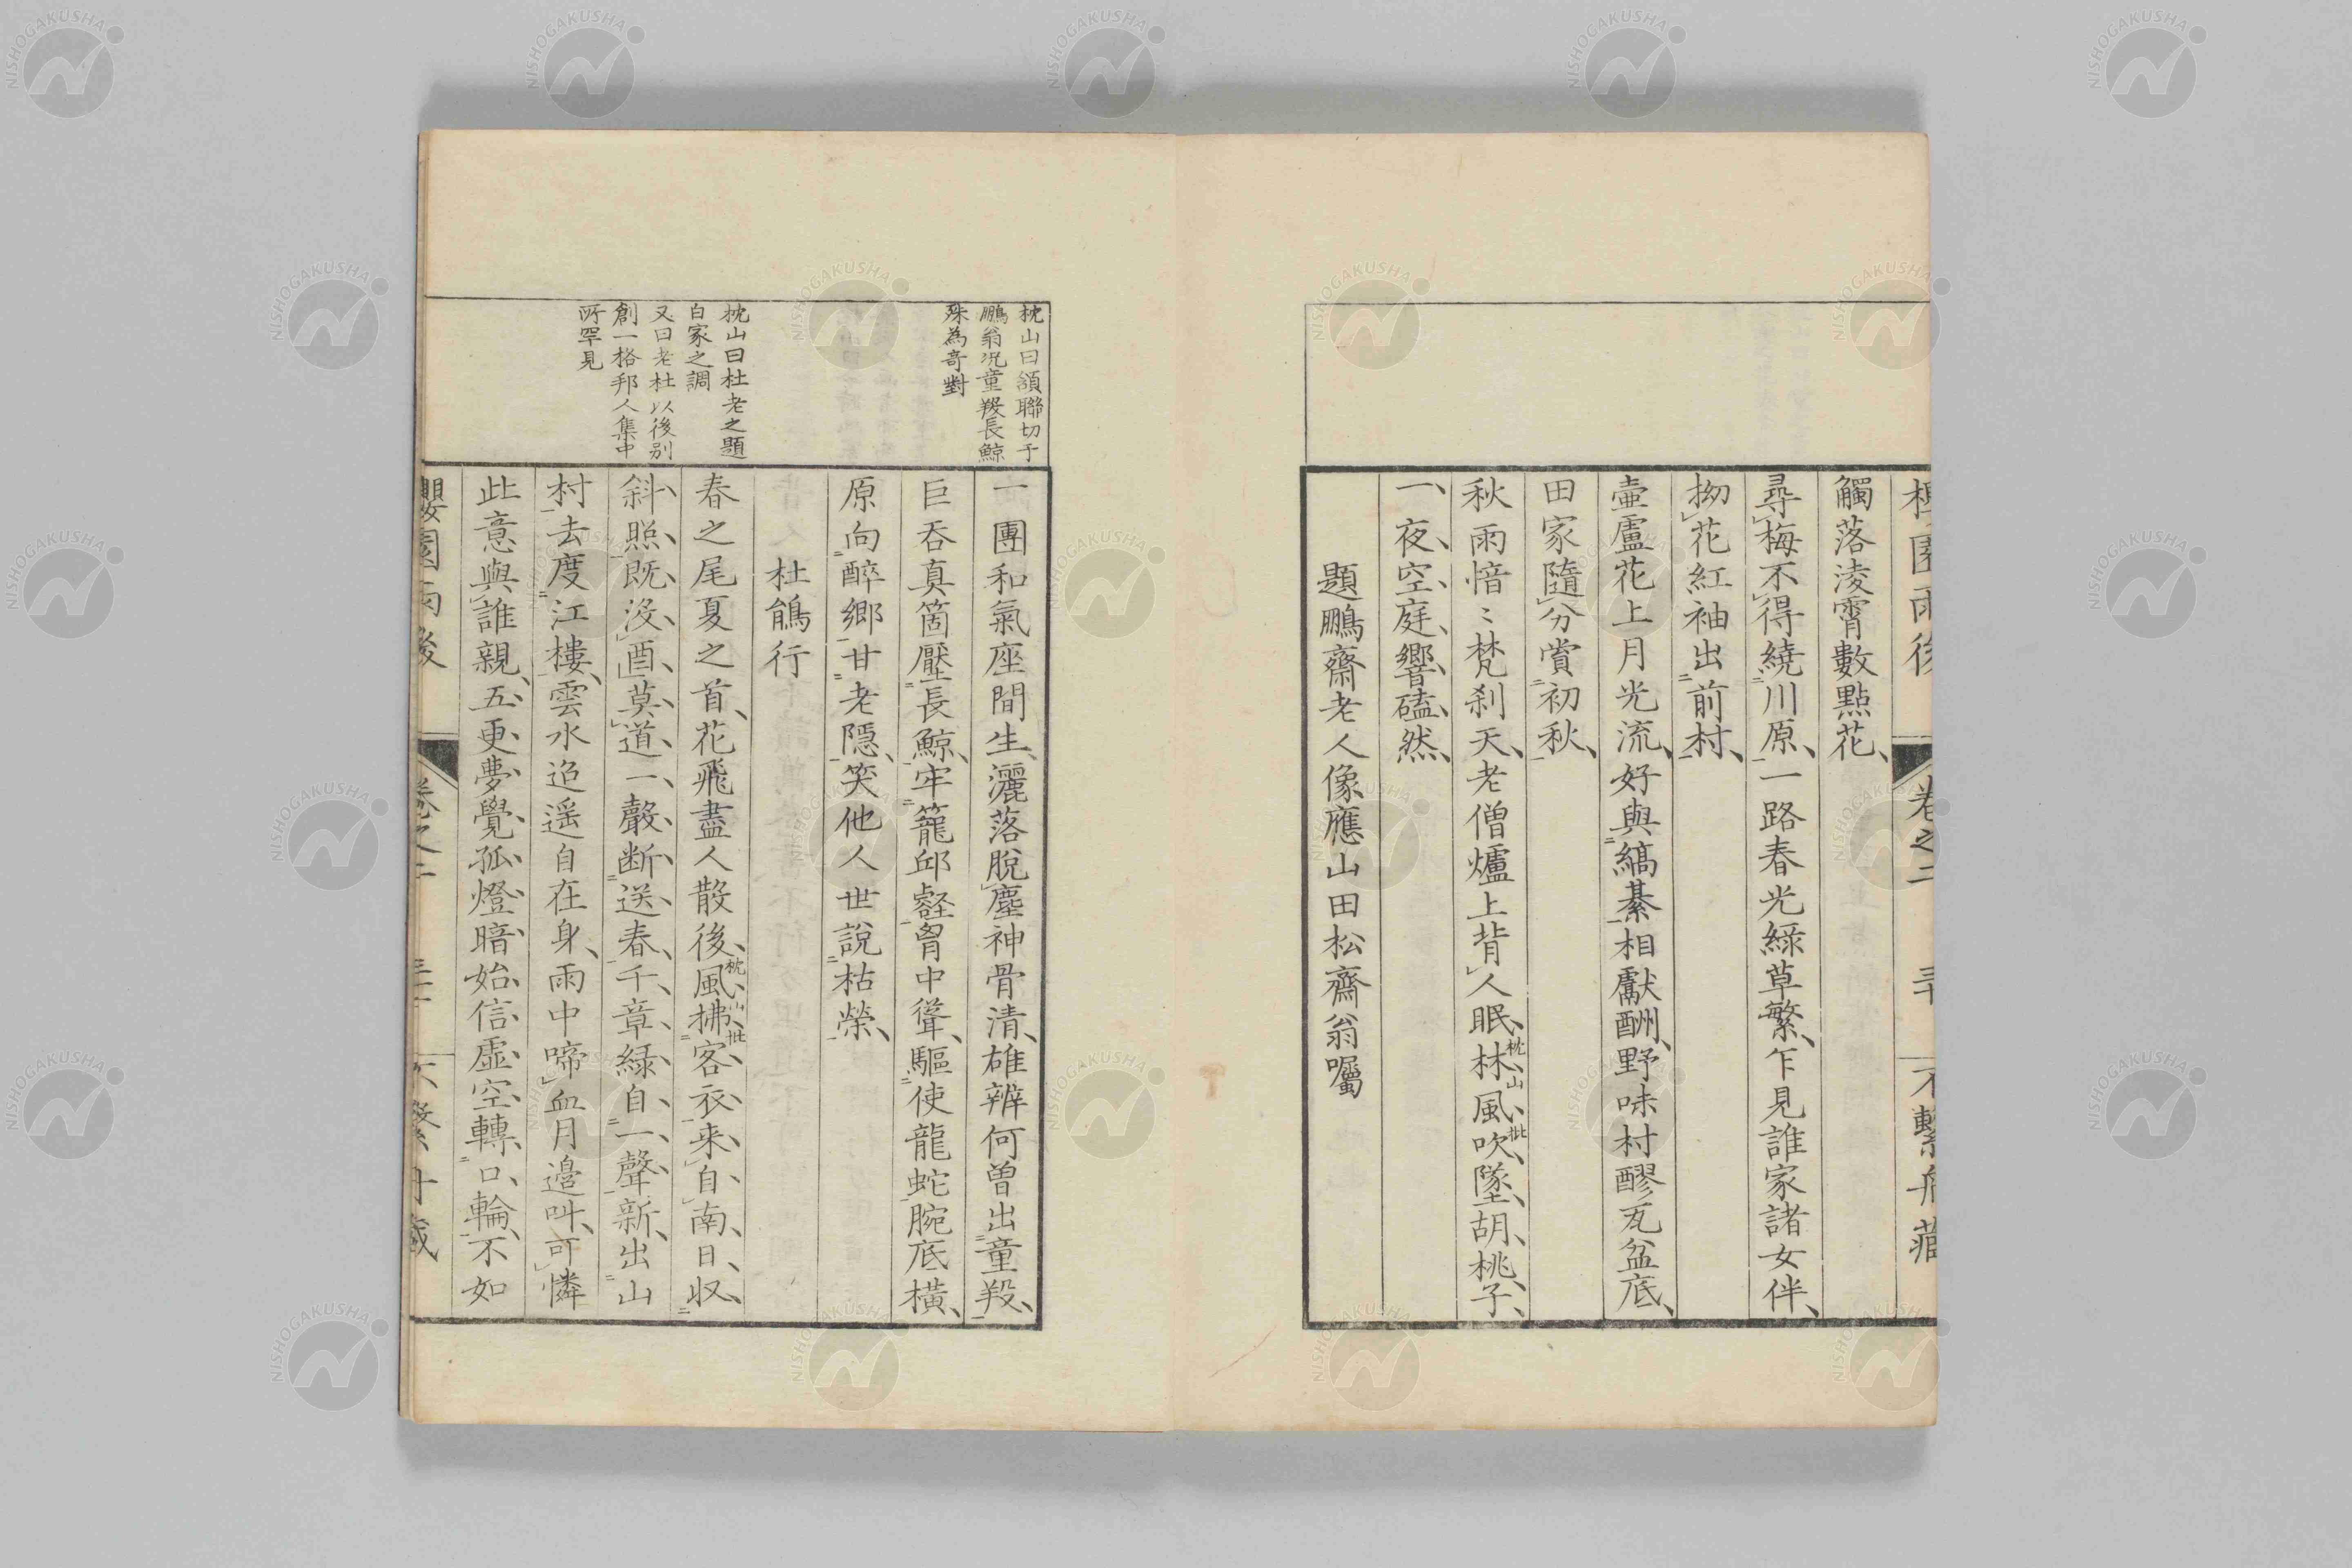 觸落淩霄數點花
尋梅不得繞川原一路春光綠草繁乍見誰家諸女伴
拗花紅袖出前村
壷盧花上月光流好與縞綦相獻酬野味村醪瓦盆底
田家隨分賞初秋
秋雨愔〻梵刹天老僧爐上背人眠林風吹墜胡桃子
枕山批
一夜空庭響磕然
題鵬齋老人像應山田松齋翁囑
枕山曰頷聯切于
鵬翁況童羖長鯨
殊為奇對
一團和氣座間生灑落脫塵神骨清雄辨何曽出童羖
巨吞真箇壓長鯨牢籠邱壑胷中聳驅使龍蛇腕底橫
原向醉鄉甘老隱笑他人世說枯榮
杜鵑行
枕山曰杜老之題
白家之調
又曰老杜以後別
創一格邦人集中
所罕見
春之尾夏之首花飛盡人散後風拂客衣来自南日収
枕山批
斜照既沒酉莫道一聲断送春千章綠自一聲新出山
村去度江樓雲水迢遥自在身雨中啼血月邉叫可憐
此意與誰親五更夢覺孤燈暗始信虛空轉口輪不如